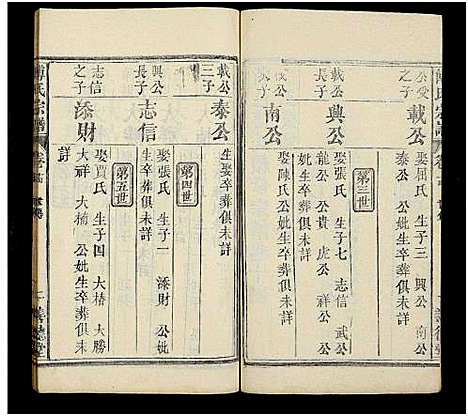 公受
之子
載公
娶屈氏 生子三 興公 南公
泰公 公妣生卒葬俱未詳
第三世
載公
長子
興公
娶張氏 生子七 志信 武公
龍公 公貴 虎公 祥公 公
南公
娶陳氏 公妣生卒葬俱未詳
傅氏宗譜
載公
三子
泰公
生娶卒葬俱未詳
第四世
興公
長子
志信
娶張氏 生子一 添財 公妣
生卒葬俱未詳
第五世
志信
之子
添財
娶賈氏 生子四 大椿 大勝
大祥 大楠 公妣生卒葬俱未
詳
善德堂